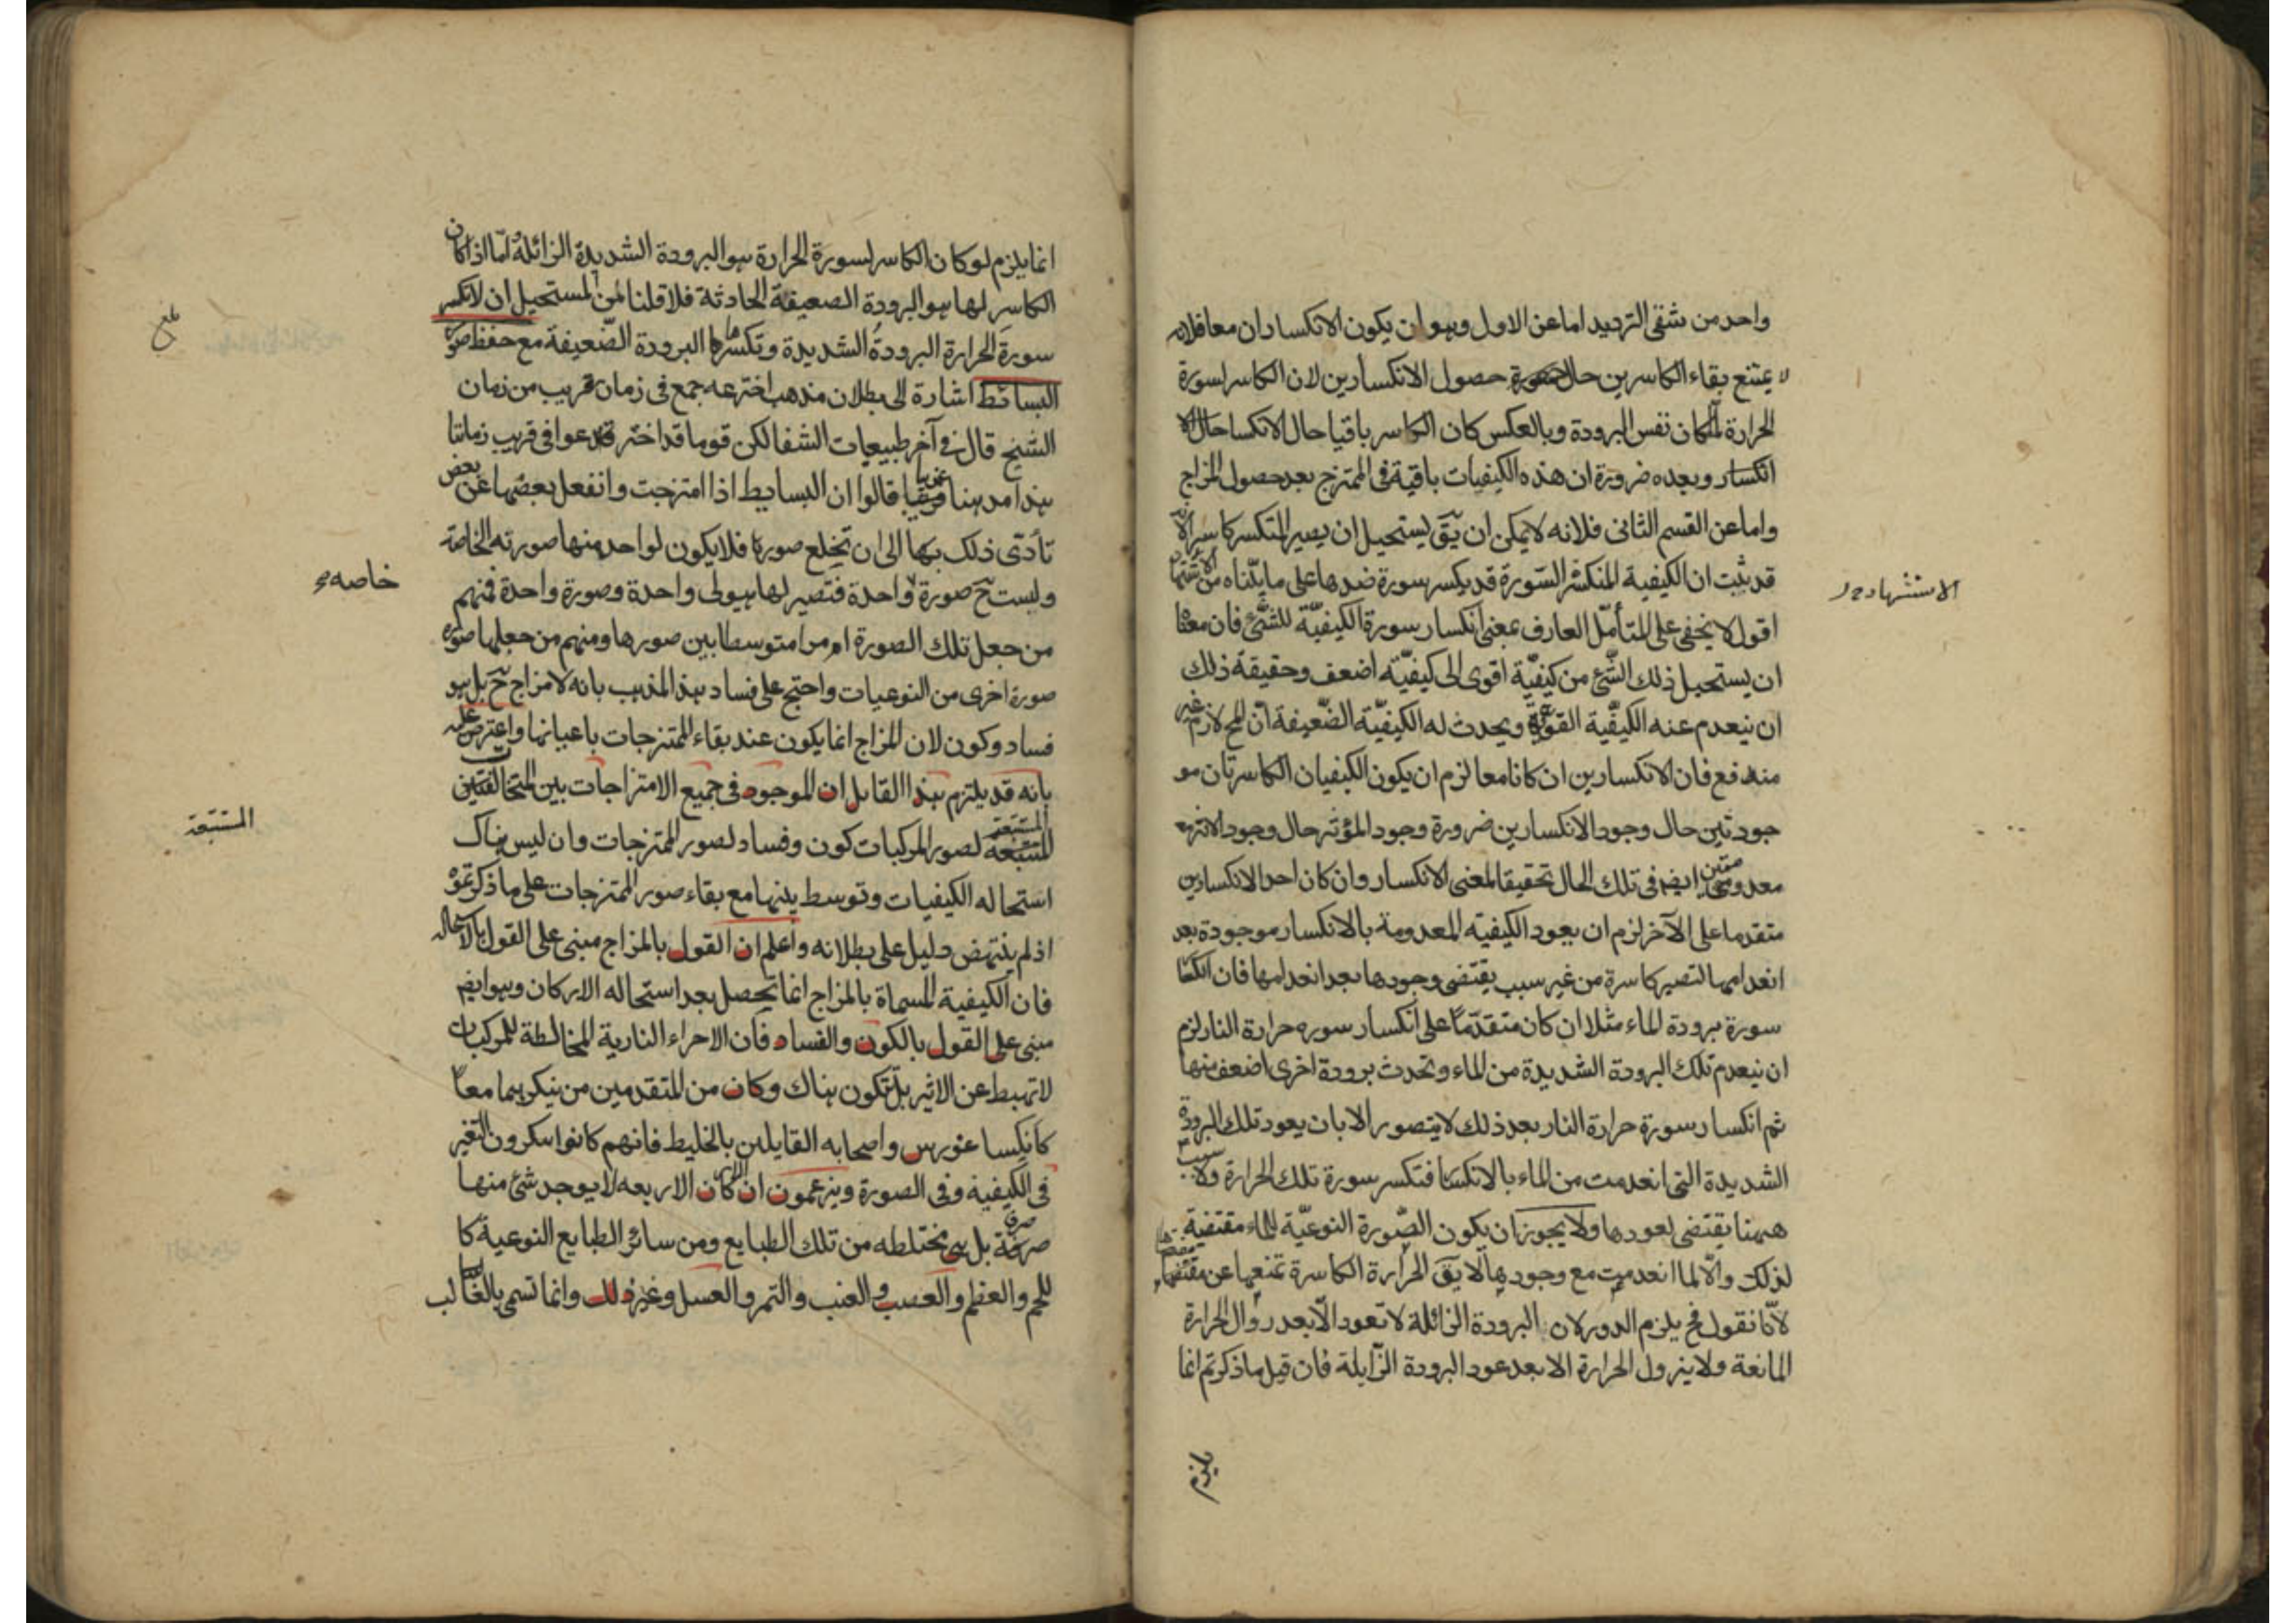 واحد من شقى الترديد اما عن الاول وهو ان يكون الانكساران معا فلانه
لا يمتنع بقاء الكاسرين حال حصول الانكسارين لان الكاسر لسورة
الحرارة لما كان نفس البرودة وبالعكس كان الكاسر باقيا حال الانكسا حال الا
انكسار وبعده ضرورة ان هذه الكيفيات باقية فى الممتزج بعد حصول المزاج
واما عن القسم الثانى فلانه لا يمكن ان يق يستحيل ان يصير المنكسر كاسرا لانه
قد ثبت ان الكيفية المنكسر السورة قد يكسر سورة ضدها على ما بيناه من
الاستشهاد
اقول لا يخفى على المتأمل العارف بمعنى انكسار سورة الكيفية للشئ فان معنا
ان يستحيل ذلك الشئ من كيفية اقوى الى كيفية اضعف وحقيقة ذلك
ان ينعدم عنه الكيفية القوية ويحدث له الكيفية الضعيفة ان المح لازم غير
مندفع فان الانكسارين ان كانا معا لزم ان يكون الكيفيتان الكاسرتان مو
جودتين حال وجود الانكسارين ضرورة وجود المؤثر حال وجود الاثر
معدومتين ايضا فى تلك الحال تحقيقا لمعنى الانكسار وان كان احد الانكسارين
متقدما على الآخر لزم ان يعود الكيفيه المعدومة بالانكسار موجودة بعد
انعدامها لتصير كاسرة من غير سبب يقتضى وجودها بعد انعدامها فان انكسا
سورة برودة الماء مثلا ان كان متقدما على انكسار سوره حرارة النار لزم
ان ينعدم تلك البرودة الشديدة من الماء وتحدث برودة اخرى اضعف منها
ثم انكسار سورة حرارة النار بعد ذلك لا يتصور الا بان يعود تلك البرودة
الشديدة التى انعدمت من الماء بالانكسا فتكسر سورة تلك الحرارة ولا سبب
ههنا يقتضى لعودها ولا يجوز ان يكون الصورة النوعية للماء مقتضية
لذلك والا لما انعدمت مع وجودها لا يق الحرارة الكاسرة تمنعها عن مقتضاها
لانا نقول فح يلزم الدور لان البرودة الزائلة لا تعود الا بعد زوال الحرارة
المانعة ولا يزول الحرارة الا بعد عود البرودة الزايلة فان قيل ما ذكرتم انما
يلزم
انما يلزم لو كان الكاسر لسورة الحرارة هو البرودة الشديدة الزائلة اما اذا كان
الكاسر لها هو البرودة الضعيفة الحادثة فلا قلنا لمن المستحيل ان لا تكسر
بلغ
سورة الحرارة البرودة الشديدة وتكسرها البرودة الضعيفة مع حفظ صور
البسائط اشارة الى بطلان مذهب اخترعه جمع فى زمان قريب من زمان
الشيخ قال فى آخر طبيعيات الشفا لكن قوما قد اخترعوا فى قريب زماننا
هذا مذهبا غريبا قالوا ان البسايط اذا امتزجت وانفعل بعضها عن بعض
تأدى ذلك بها الى ان تخلع صورها فلا يكون لواحد منها صورته الخاصة
ولبست ح صورة واحدة فتصير لها هيولى واحدة وصورة واحدة فمنهم
خاصه
من جعل تلك الصورة امرا متوسطا بين صورها ومنهم من جعلها صوره
صورة اخرى من النوعيات واحتج على فساد هذا المذهب بانه لا مزاج ح بل هو
فساد وكون لان المزاج انما يكون عند بقاء الممتزجات باعيانها واعترض عليه
بانه قد يلتزم هذا القايل ان الموجود فى جميع الامتزاجات بين المتخالفتين
المستتبعة لصور المركبات كون وفساد لصور الممتزجات وان ليس هناك
المستتبعة
استحاله الكيفيات وتوسط بينها مع بقاء صور الممتزجات على ما ذكرتموه
اذ لم ينتهض دليل على بطلانه واعلم ان القول بالمزاج مبنى على القول بالاستحاله
فان الكيفية المسماة بالمزاج انما يحصل بعد استحاله الاركان وهو ايضا
مبنى على القول بالكون والفساد فان الاجزاء النارية المخالطة للمركبات
لا تهبط عن الاثير بل تكون هناك وكان من المتقدمين من ينكرهما معا
كانكساغورس واصحابه القايلين بالخليط فانهم كانوا ينكرون التغير
فى الكيفية وفى الصورة ويزعمون ان الاركان الاربعه لا يوجد شئ منها
صرفة بل هى مختلطه من تلك الطبايع ومن سائر الطبايع النوعية كا
للحم والعظم والعصب والعنب والتمر والعسل وغير ذلك وانما تسمى بالغالب